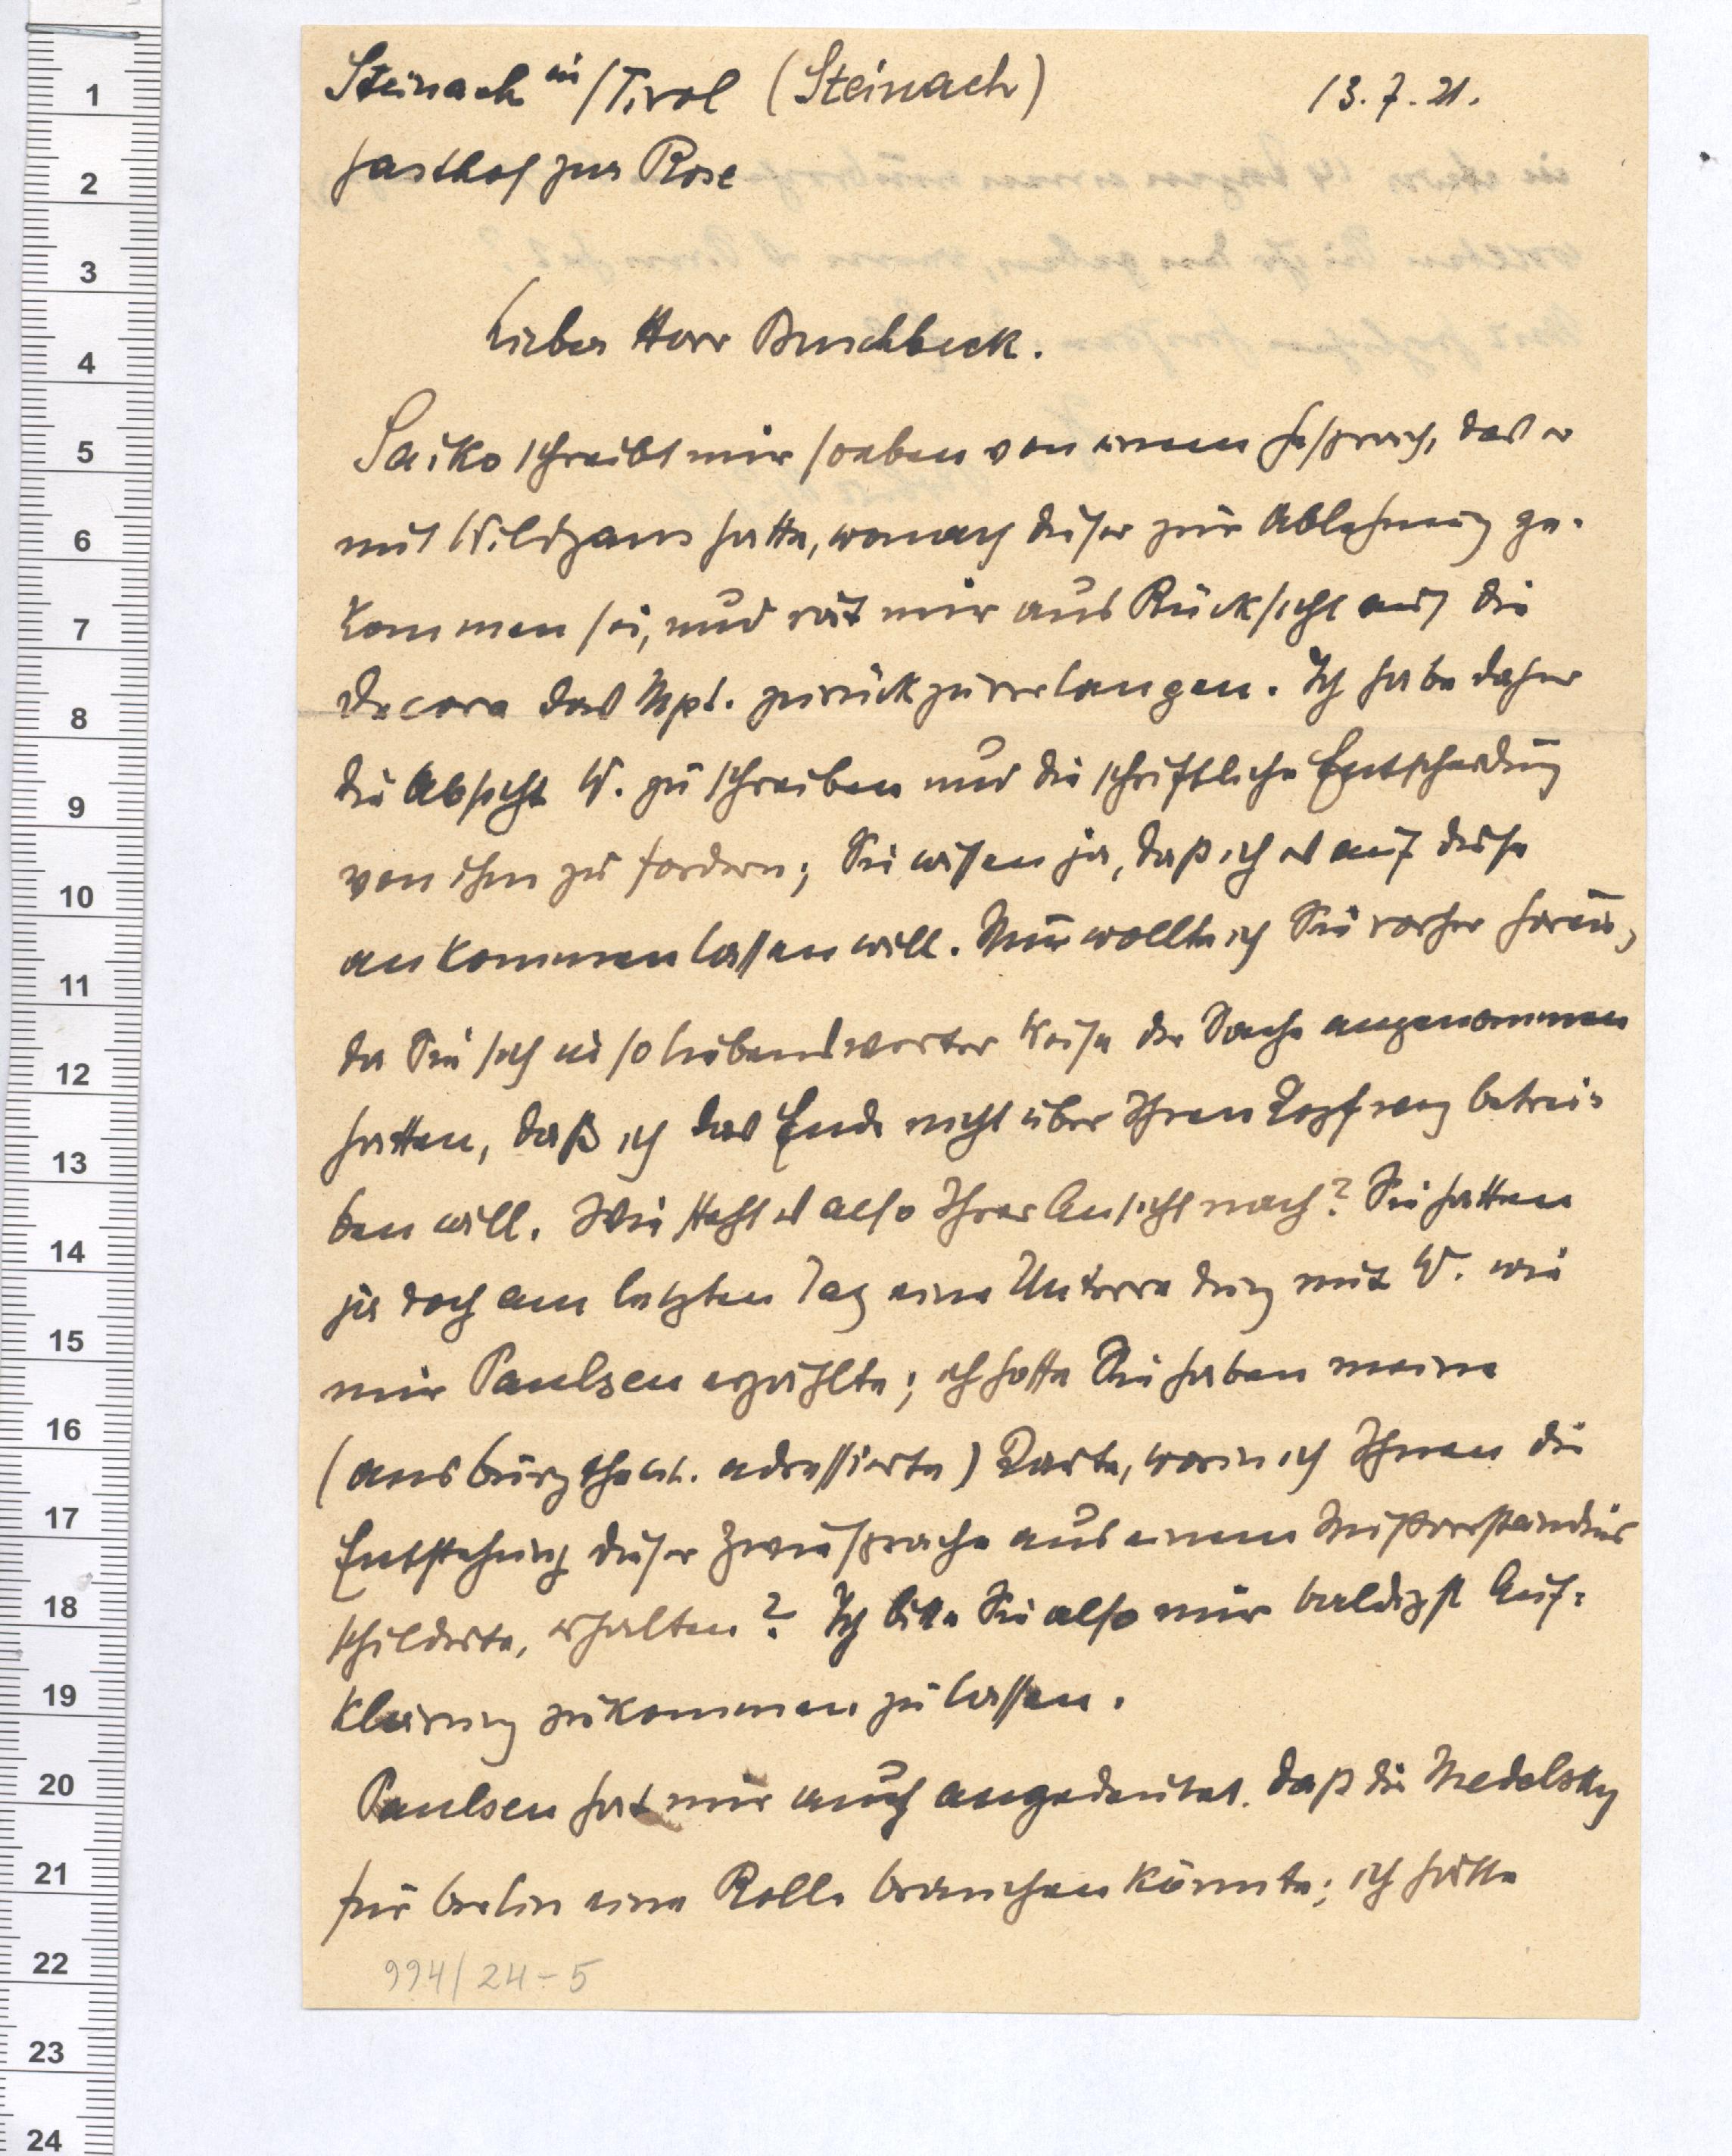 Steinach in/Tirol (Steinach) 13.7.21.
Gasthof zur Rose
Lieber Herr Buschbeck.
Saiko schreibt mir soeben von einem Gespräch, das er
mit Wildgans hatte, wonach dieser zur Ablehnung ge-
kommen sei, und rät mir aus Rücksicht auf die
Decora das Mpt. zurückzuverlangen. Ich habe daher
die Absicht W. zu schreiben und die schriftliche Entscheidung
von ihm zu fordern; Sie wissen ja, daß ich es auf diese
ankommen lassen will. Nur wollte ich Sie vorher hören,
da Sie sich in so liebenswerter Weise der Sache angenommen
hatten, daß ich das Ende nicht über Ihren Kopf weg betrei-
ben will. Wie steht es also Ihrer Ansicht nach? Sie hatten
ja doch am letzten Tag eine Unterredung mit W. wie
mir Paulsen erzählte; ich hoffe Sie haben meine
(ans Burgtheat. adressierte) Karte, worin ich Ihnen die
Entstehung dieser Zwiesprache aus einem Mißverständnis
schilderte, erhalten? Ich bitte Sie also mir baldigst Auf-
klärung zukommen zu lassen.
Paulsen hat mir auch angedeutet. daß die Medelsky
für Berlin eine Rolle brauchen könnte; ich hätte
994/24-5
1
2
3
4
5
6
7
8
9
10
11
12
13
14
15
16
17
18
19
20
21
22
23
24